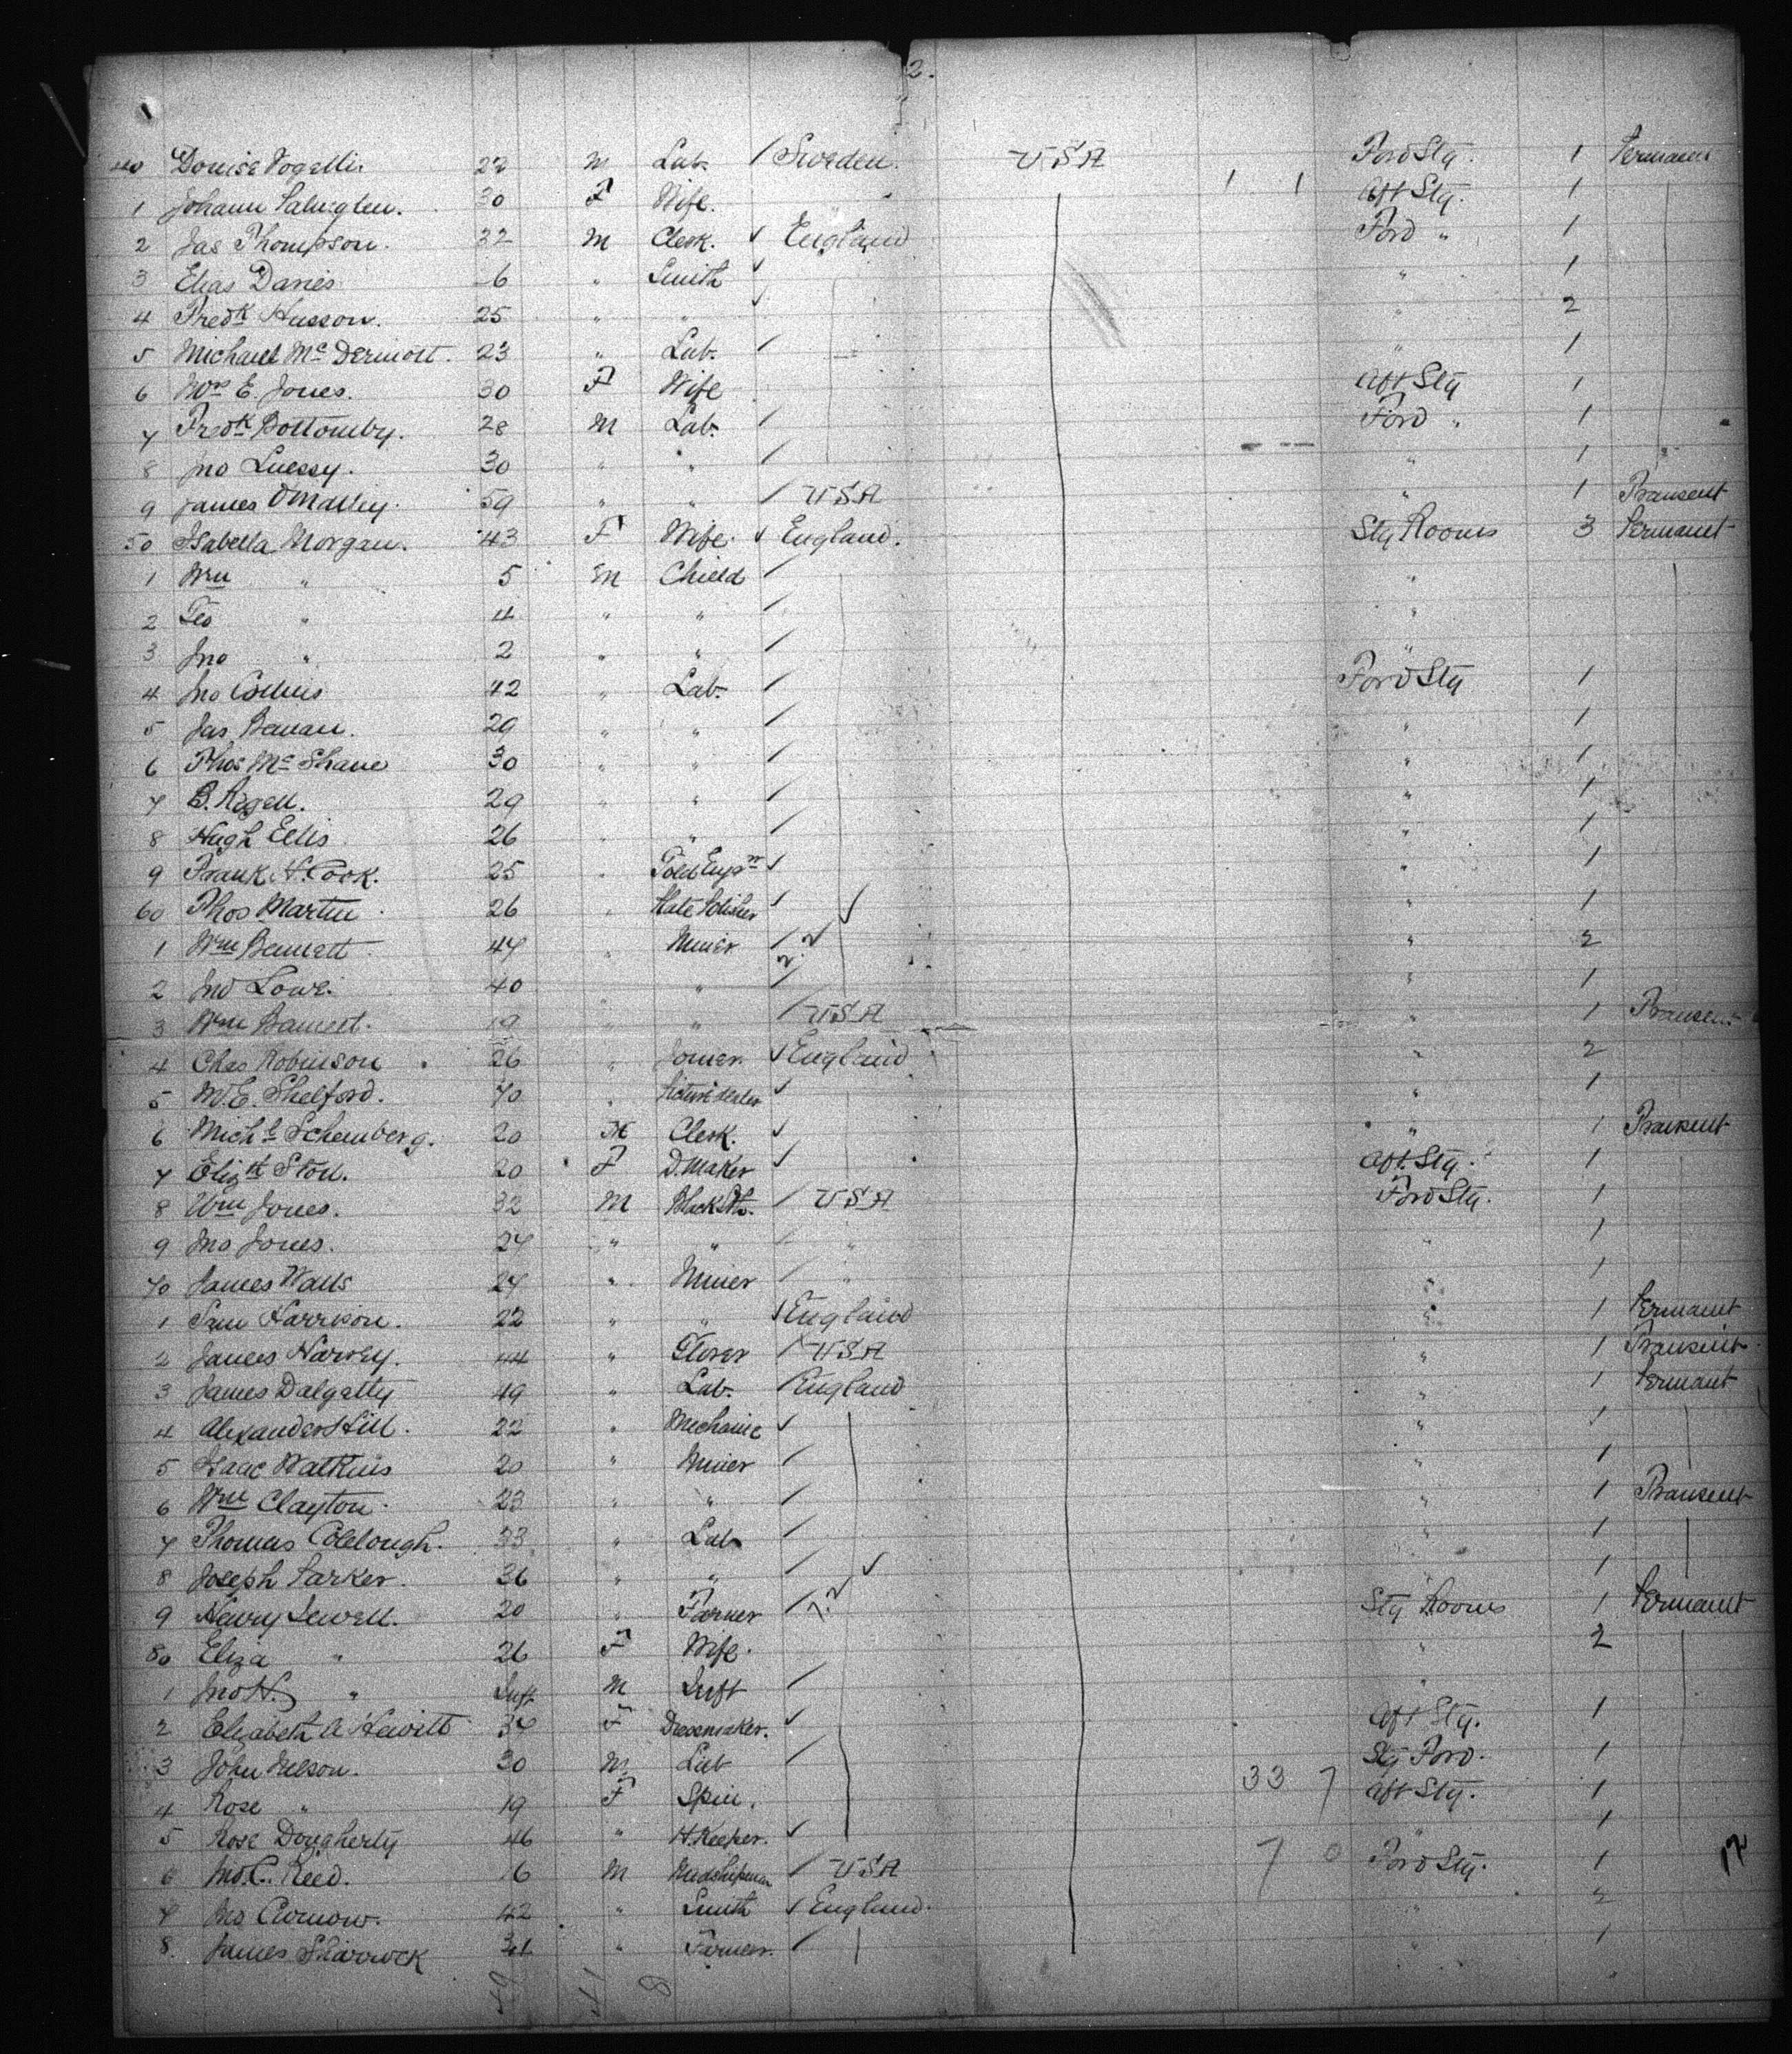 2.
40 Louise Vogelli. 22 m Lab. / Sweden. USA Ford Stg. 1 Permanent
1 Johann 30 F Wife. 1 1 Aft Stg. 1
2 Jas Thompson. 32 M Clerk. ✓ England Ford " 1
3 Elias Davies 6 " Smith ✓ " 1
4 Fredk Husson. 25 " " ✓ " 2
5 Michael McDermott. 23 " Lab. / " 1
6 Mrs E. Jones. 30 F Wife Aft Stg 1
7 Fredk Bottomby. 28 M Lab. / Ford " 1
8 Jno Luessy. 30 " " / " 1
9 James OMalley. 59 " " / USA " 1 Transent
50 Isabella Morgan. 43 F Wife. ✓ England. Stg Rooms 3 Permanent
1 Wm " 5 M Child / "
2 Geo " 4 " " / "
3 Jno " 2 " " / "
4 Jno Collins 42 " Lab. / Ford Stg 1
5 Jas Banan. 29 " " / " 1
6 Thos McShane 30 " " / " 1
7 B. Rigell. 29 " " / " 1
8 Hugh Ellis 26 " " / " 1
9 Frank H. Cook. 25 " ✓ " 1
60 Thos Martin 26 " ✓ ✓ " 1
1 Wm Bennett 47 " Miner / " 2
2 Jno Lowe. 40 " " / " 1
3 Wm Bennett. 19 " " / USA " 1 Transent
4 Chas Robinson 26 " Joiner. ✓ England " 2
5 W. E. Shelford. 70 " Picture dealer ✓ " 1
6 Michl Schemberg. 20 M Clerk. ✓ " 1 Transent
7 Elizth Stoll. 20 F D. Maker ✓ Aft. Stg. 1
8 Wm Jones. 32 M BlackSth. / USA Ford Stg. 1
9 Jno Jones. 27 " " / " " 1
70 James Walls 27 " Miner / " " 1
1 Sam Harrison. 22 " " ✓ England " 1 Permanent
2 James Harvey. 44 " Glover / USA " 1 Transent
3 James Dalgetty 49 " Lab. / England " 1 Permanent
4 Alexander Hill. 22 " Mechanic ✓ " 1
5 Isaac Watkins 20 " Miner / " 1
6 Wm Clayton. 23 " " / " 1 Transent
7 Thomas Colclough. 33 " Lab / " 1
8 Joseph Parker. 36 " " / ✓ " 1
9 Henry Sewell. 20 " Farmer / Stg Rooms 1 Permanent
80 Eliza " 26 F Wife. " 2
1 Jno H. " Inft M Inft / "
2 Elizabeth A Hewitt 37 F Dressmaker. ✓ Aft Stg. 1
3 John Nelson. 30 M. Lab / Stg Ford. 1
4 Rose " 19 F Spin. 33 7 Aft Stg. 1
5 Rose Dougherty 46 " H. Keeper. ✓ " 1
6 Jno. C. Reed. 6 M Midshipman / USA 7 0 Ford Stg. 1
7 Jno Curnow. 42 " Smith ✓ England. " 2
8. James Sharrock 31 " Farmer. / " 1